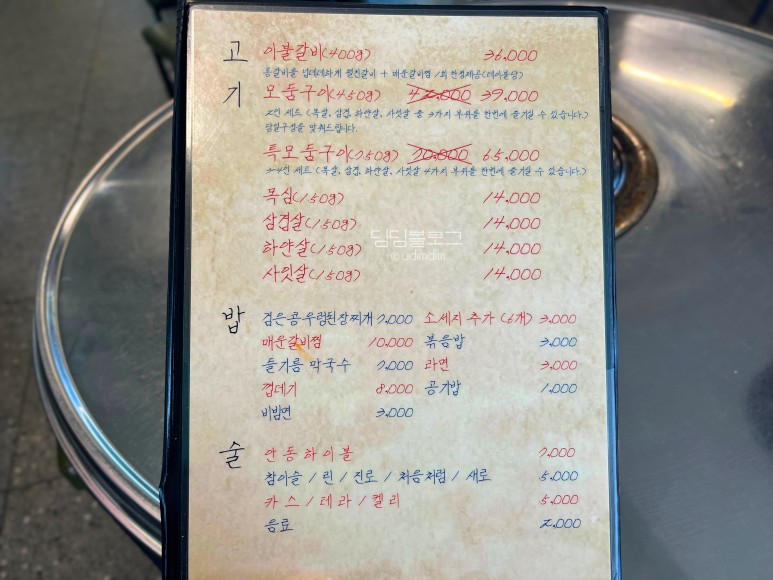 고기
이불갈비(400g) 36,000
통갈비를 넙데데하게 펼친갈비 + 매운갈비찜 1회 한정제공(테이블당)
모둠구이(450g) 42,000 39,000
2인 세트 (목살, 삼겹, 하얀살, 사잇살 중 3가지 부위를 한번에 즐기실 수 있습니다.)
구성을 맞춰드립니다.
특모둠구이(750g) 70,000 65,000
3~4인 세트 (목살, 삼겹, 하얀살, 사잇살 4가지 부위를 한번에 즐기실 수 있습니다.)
목심(150g) 14,000
삼겹살(150g) 14,000
하얀살(150g) 14,000
사잇살(150g) 14,000
딤딤블로그
© udimdim
밥
검은콩 우렁된장찌개 7,000 소세지 추가 (6개) 3,000
매운갈비찜 10,000 볶음밥 3,000
들기름 막국수 7,000 라면 3,000
껍데기 8,000 공기밥 1,000
비빔면 3,000
술
안동하이볼 7,000
참이슬 / 린 / 진로 / 처음처럼 / 새로 5,000
카스 / 테라 / 켈리 5,000
음료 2,000